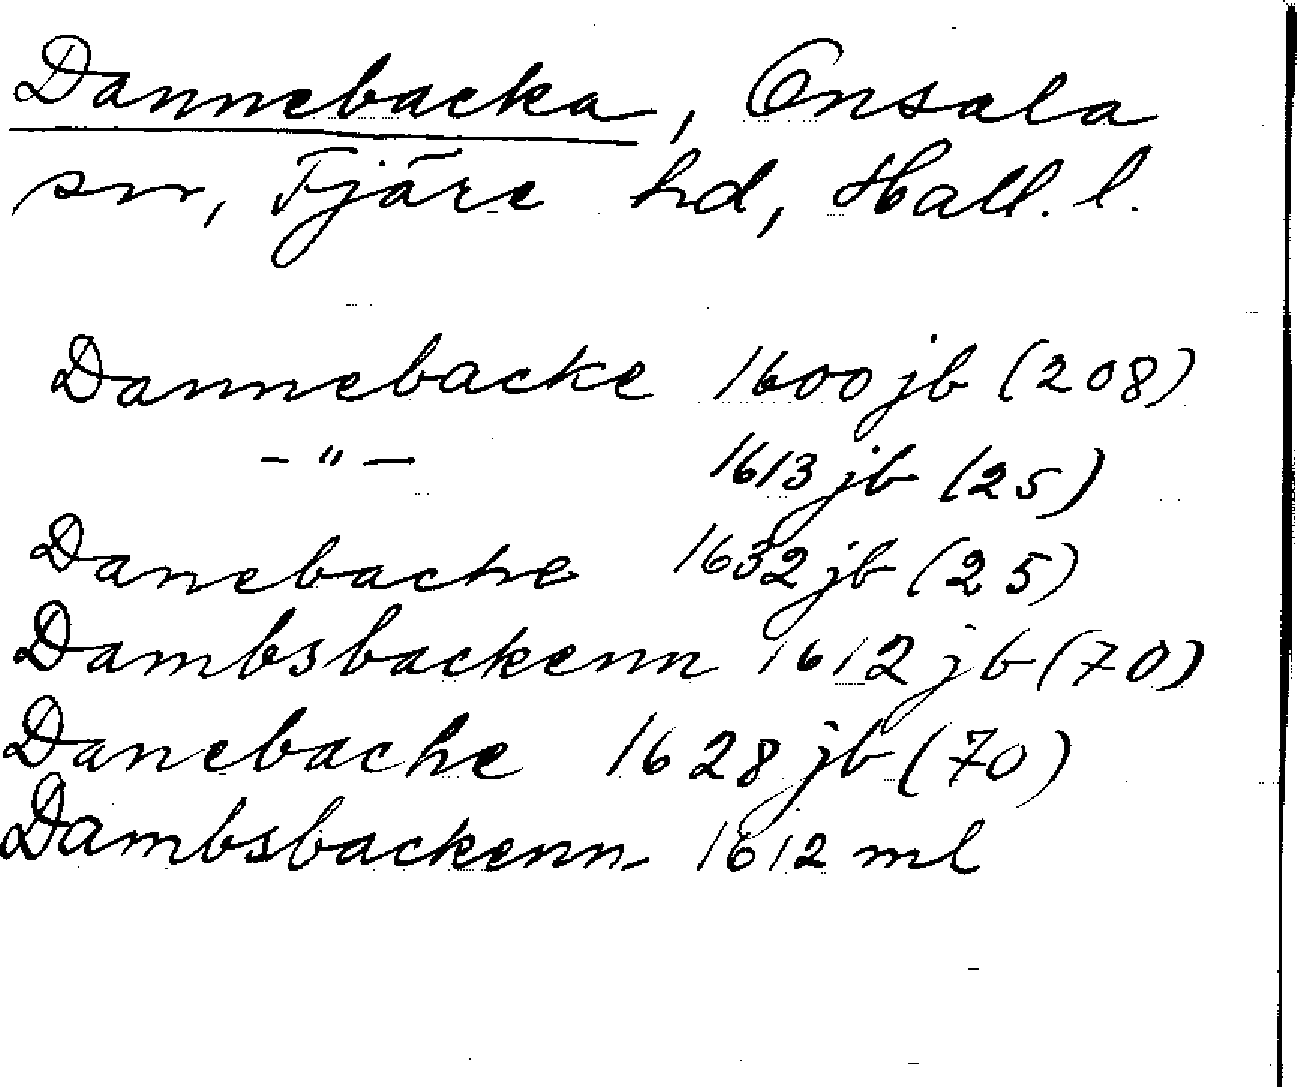 Dannebacka, Onsala
sn, Fjäre hd, Hall. l.
Dannebacke 1600 jb (208)
— " — 1613 jb (25)
Danebache 1632 jb (25)
Dambsbackenn 1612 jb (70)
Danebache 1628 jb (70)
Dambsbackenn 1612 ml